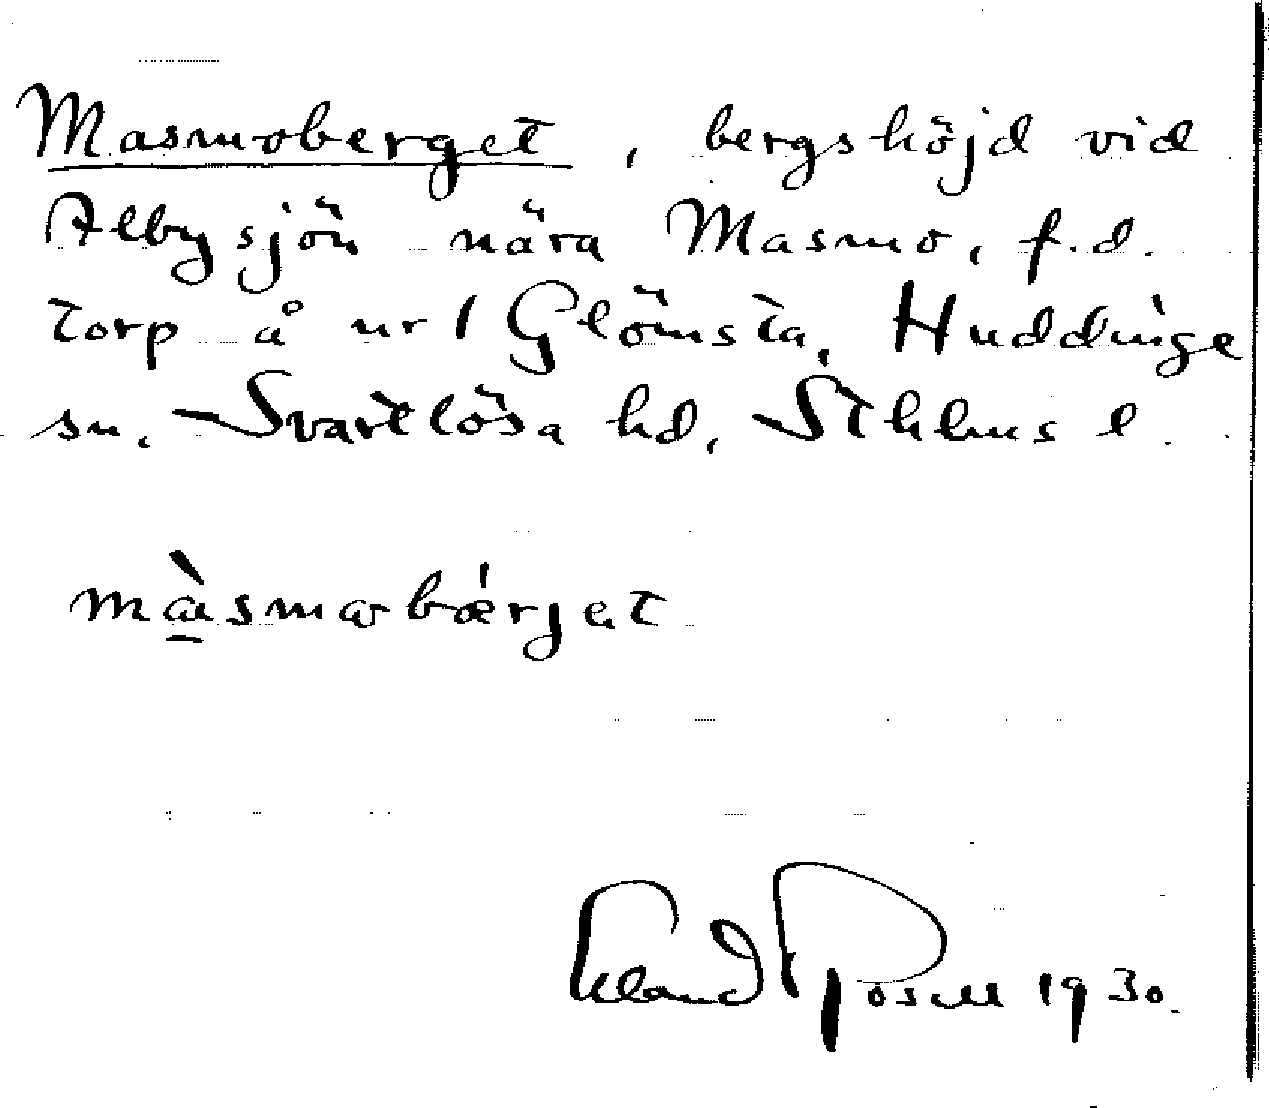 Masmoberget, bergshöjd vid
Albysjön nära Masmo, f.d.
torp å nr 1 Glömsta, Huddinge
sn. Svartlösa hd, Sthlms l.
màsmabǽrjet
Erland Rosell 1930.